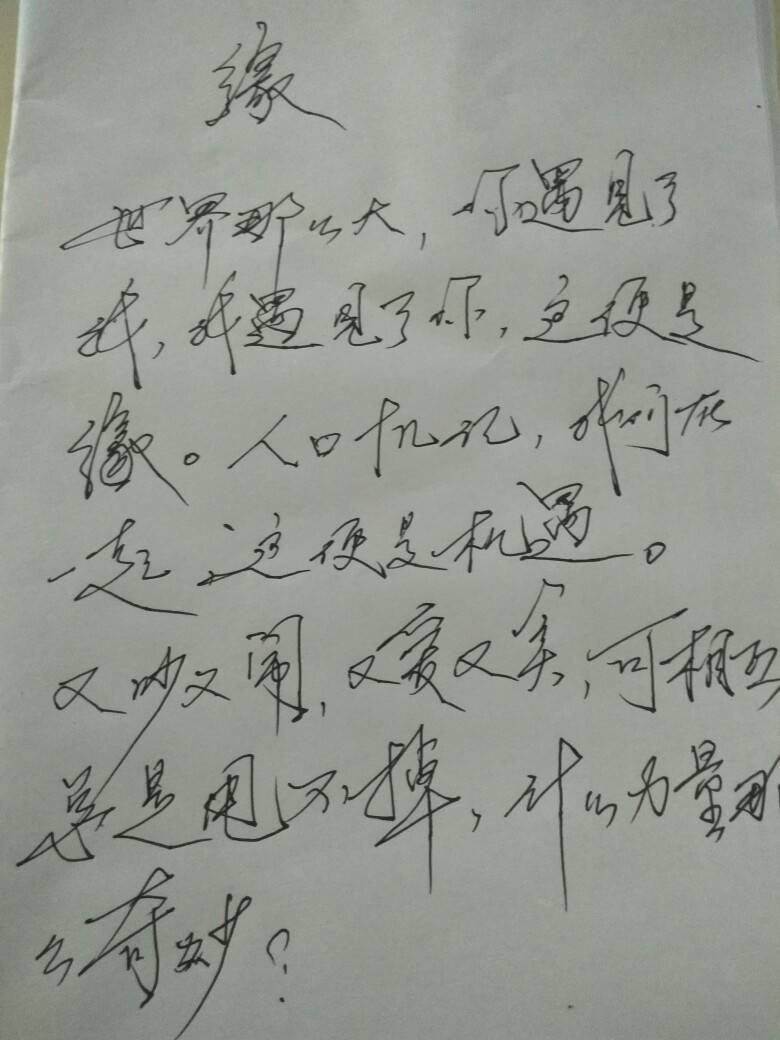 缘
世界那么大，你遇见了
我，我遇见了你，这便是
缘。人口忆，我们在
一起，这便是机遇。
又吵又闹，又爱又，可相互
总是甩不掉，什么力量那
么奇妙？